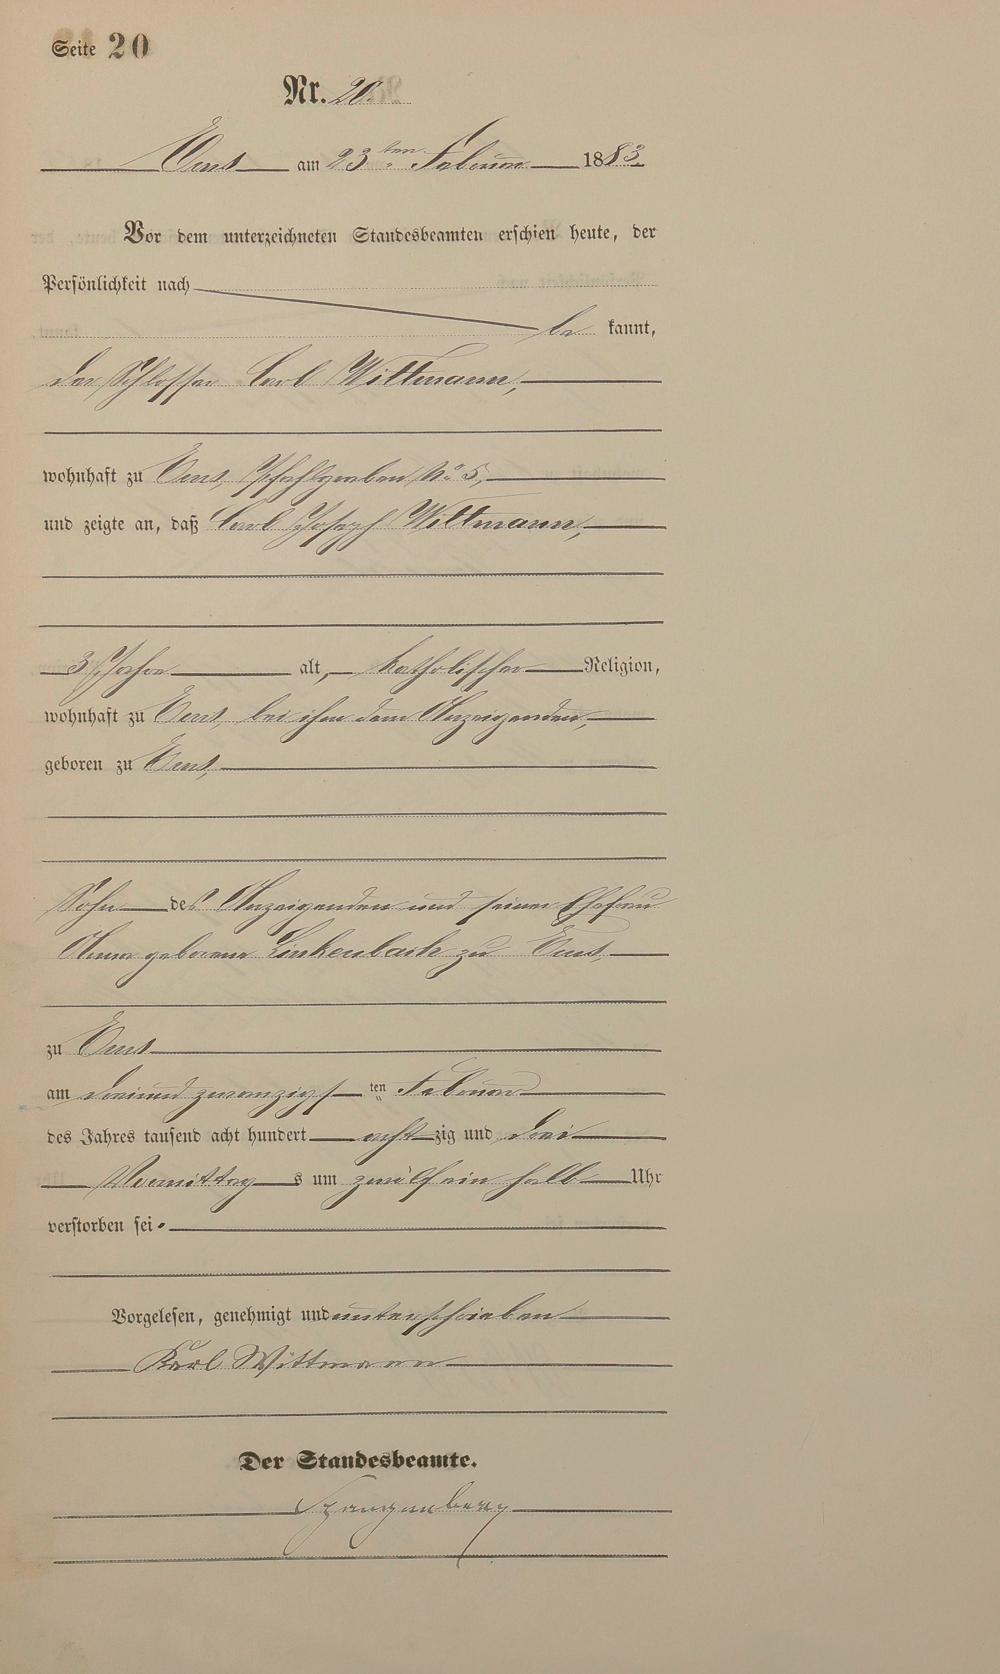 Seite 20
Nr. 20.
Ems am 23ten Februar 1883.
Vor dem unterzeichneten Standesbeamten erschien heute, der
Persönlichkeit nach
be kannt,
der Schlosser Carl Wittmann,
wohnhaft zu Ems, Pfahlgraben No 5,
und zeigte an, daß Carl Joseph Wittmann,
3 Jahre alt, katholischer Religion,
wohnhaft zu Ems, bei ihm dem Anzeigenden,
geboren zu Ems,
Sohn des Anzeigenden und seiner Ehefrau
Anna geborene Linkenbach zu Ems,
zu Ems
am dreiundzwanzigsten Februar
des Jahres tausend acht hundert acht zig und drei
Vormittags um zwölf ein halb Uhr
verstorben sei.
Vorgelesen, genehmigt und unterschrieben
Karl Wittmann
Der Standesbeamte.
Spangenberg